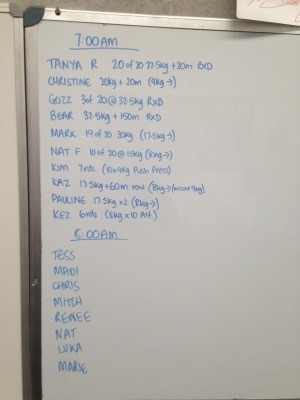 7:00AM
TANYA R 20 of 20 22.5kg +20m RXD
CHRISTINE 20kg + 20m (9kg →)
GOZZ 3of 20@ 32.5kg RXD
BEAR 32.5kg + 150m RXD
MARK 19 of 20 30kg (17.5kg→)
NAT F 10 of 20 @ 15kg (8kg→)
KIM 7rds (10x9kg Push Press)
KAZ 17.5kg +60m row (8kg→ 9kg)
PAULINE 17.5kg x2 (8kg→)
KEZ 6rds (8kg x 10 Alt.)
8:00AM
TESS
MADI
CHRIS
MITCH
RENEE
NAT
LUKA
MARIE